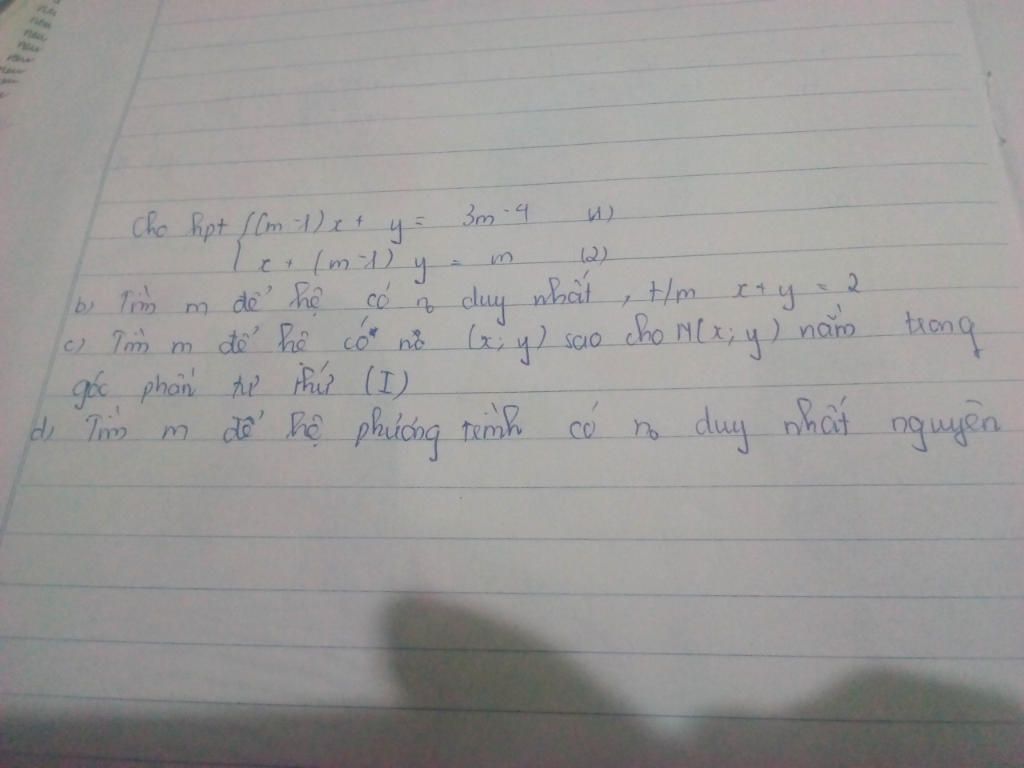 new
new
new
new
new
Cho hpt { (m-1)x + y = 3m-4 (1)
x + (m-1) y = m (2)
b) Tìm m để hệ có no duy nhất, t/m x+y = 2
c) Tìm m để hệ có no (x; y) sao cho M(x; y) nằm trong
góc phần tư thứ (I)
d) Tìm m để hệ phương trình có no duy nhất nguyên